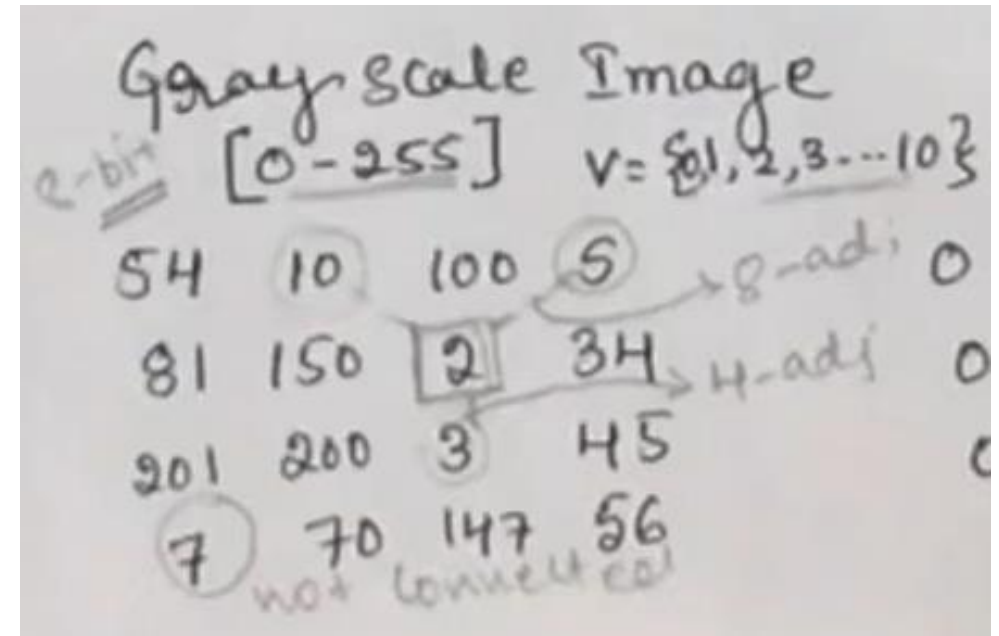 Gray scale Image
8-bit [0-255] V= {0,1, 2,3---10}
54 10 100 5 8-adj 0
81 150 2 34 4-adj 0
201 200 3 45 0
7 70 147 56
not connected